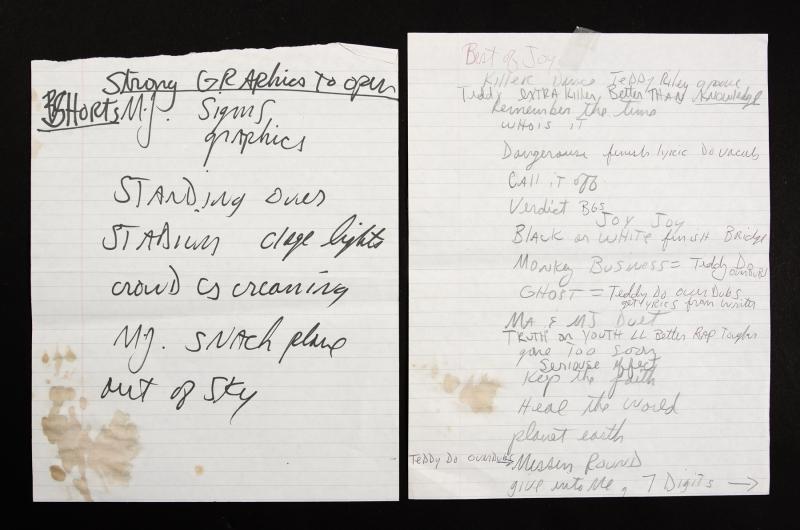 Strong GRAphics To open
SHORTS M.J. Signs
graphics
STANDing over
STADium clage lights
crowd is screaming
MJ. SNAch plane
out of Sky
Best of Joy
Killer Dance TeDDy Riley groove
Teddy EXTRA Killer Better THAN KNOWledge
Remember the time
WHO is iT
Dangerouse finish lyric Do vocals
CAll iT off
Verdict BGs
JOY JOY
BlAck or WHiTe finish BRidge
Monkey Business = Teddy Do
overDUBS
GHOST = Teddy Do overDubs
get lyrics from writer
MA & MJ Duet
TRUTH or YOUTH LL Better RAP Tougher
gone Too soon
Seriouse effect
Keep the faith
Heal the world
planet earth
TeDDy Do overDubs → Messin ROUND
give into Me, 7 Digits →